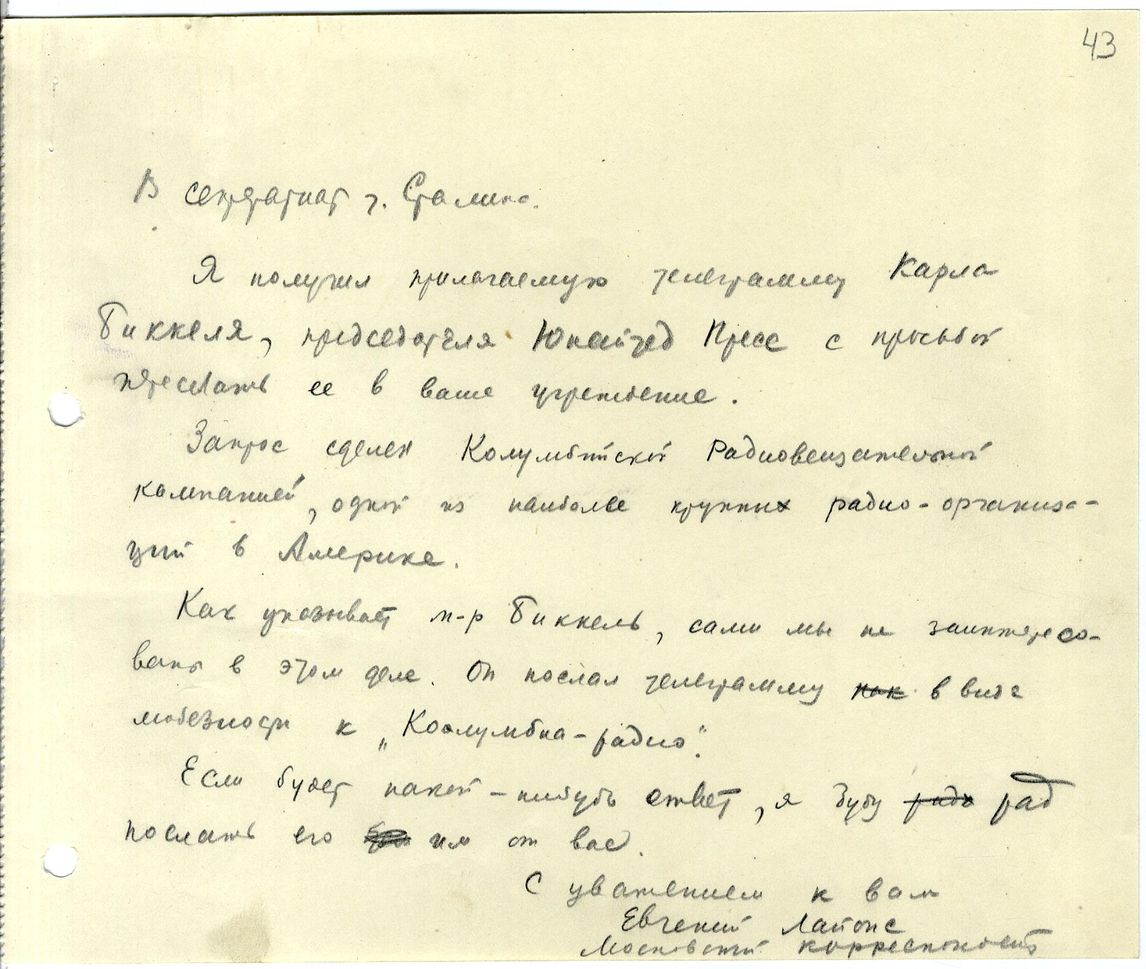 43
В секретариат т. Сталина.
Я получил прилагаемую телеграмму Карла
Биккеля, председателя Юнайтед Пресс с просьбой
переслать ее в ваше учреждение.
Запрос сделан Колумбийской Радиовещательной
компанией, одной из наиболее крупных радио-организа-
ций в Америке.
Как указывает м-р Биккель, сами мы не заинтересо-
ваны в этом деле. Он послал телеграмму как в виде
любезности к „Коолумбиа-радио".
Если будет какой-нибудь ответ, я буду радо рад
послать его им от вас.
С уважением к вам
Евгений Лайонс
Московский корреспондент